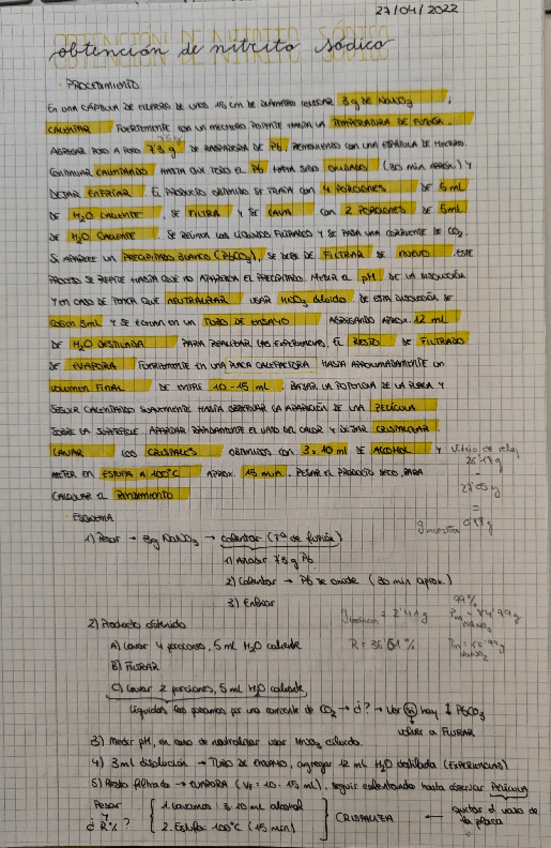 27/04/2022
OBTENCIÓN DE NITRITO SÓDICO
obtención de nitrito sódico
· PROCEDIMIENTO
EN UNA CÁPSULA DE HIERRO DE UNOS 15 CM DE DIÁMETRO COLOCAR 3g DE NaNO3 ;
CALENTAR FUERTEMENTE CON UN MECHERO POTENTE HASTA LA TEMPERATURA DE FUSIÓN.
AGREGAR POCO A POCO 7'3 g DE RASPADURA DE Pb, REMOVIENDO CON UNA ESPÁTULA DE HIERRO.
CONTINUAR CALENTANDO HASTA QUE TODO EL Pb HAYA SIDO OXIDADO (30 min APROX.) Y
DEJAR ENFRIAR. EL PRODUCTO OBTENIDO SE TRATA CON 4 PORCIONES DE 5mL
DE H2O CALIENTE, SE FILTRA Y SE LAVA CON 2 PORCIONES DE 5mL
DE H2O CALIENTE. SE REÚNEN LOS LÍQUIDOS FILTRADOS Y SE PASA UNA CORRIENTE DE CO2.
SI APARECE UN PRECIPITADO BLANCO (PbCO3), SE DEBE DE FILTRAR DE NUEVO. ESTE
PROCESO SE REPITE HASTA QUE NO APAREZCA EL PRECIPITADO. MEDIR EL pH DE LA DISOLUCIÓN
Y EN CASO DE TENER QUE NEUTRALIZAR USAR HNO3 diluido. DE ESTA DISOLUCIÓN SE
COGEN 3mL Y SE ECHAN EN UN TUBO DE ENSAYO AGREGANDO APROX. 12 mL
DE H2O DESTILADA PARA REALIZAR LAS EXPERIENCIAS. EL RESTO DE FILTRADO
SE EVAPORA FUERTEMENTE EN UNA PLACA CALEFACTORA HASTA APROXIMADAMENTE UN
VOLUMEN FINAL DE ENTRE 10-15 mL. BAJAR LA POTENCIA DE LA PLACA Y
SEGUIR CALENTANDO SUAVEMENTE HASTA OBSERVAR LA APARICIÓN DE UNA PELÍCULA
SOBRE LA SUPERFICIE. APARTAR RÁPIDAMENTE EL VASO DEL CALOR Y DEJAR CRISTALIZAR.
LAVAR LOS CRISTALES OBTENIDOS CON 3x10 mL DE ALCOHOL Y
METER EN ESTUFA A 100°C APROX. 15 MIN. PESAR EL PRODUCTO SECO, PARA
CALCULAR EL RENDIMIENTO
Vidrio de reloj
27'05 g
=
· ESQUEMA
1) Pesar → 3g NaNO3 → calentar (Tª de fusión)
1) Añadir 7'3 g Pb
2) Calentar → Pb se oxide (30 min aprox.)
3) Enfriar
99%
= 2'41g
R = 36'51 %
NaNO3
NaNO2
2) Producto obtenido
A) Lavar 4 porciones, 5 mL H2O caliente
B) FILTRAR
C) Lavar 2 porciones, 5 mL H2O caliente
Líquidos los pasamos por una corriente de CO2 → ¿? → Ver si hay ↓ PbCO3
volver a FILTRAR
3) Medir pH, en caso de neutralizar usar HNO3 diluido.
4) 3ml disolución → TUBO DE ENSAYO, agregar 12 mL H2O destilada (EXPERIENCIAS)
5) Resto filtrado → EVAPORA (VF = 10-15 mL), seguir calentando hasta observar PELÍCULA
Pesar
¿R%?
1. Lavamos: 3·10 mL alcohol
2. Estufa: 100°C (15 min)
CRISTALIZA ← quitar el vaso de
la placa